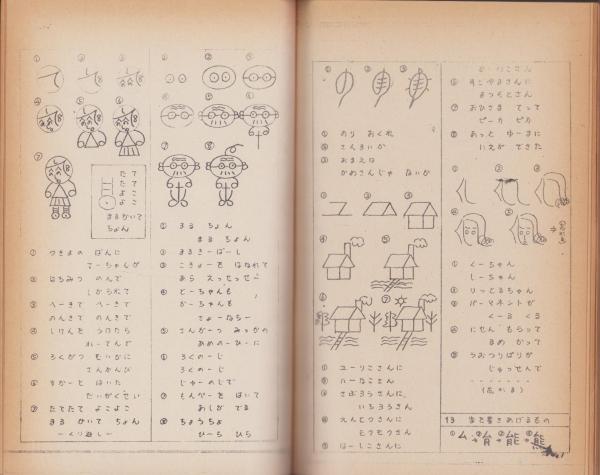 たて
たて
よこ
よこ
まるかいて
ちょん
① つきよの ばんに
てーちゃんが
② はちみつ のんで
しかられて
③ へーきで へーきで
のんきで のんきで
④ しけんを うけたら
れーてんで
⑤ ろくがつ むいかに
さんかんび
⑥ すかーと はいた
だいがくせい
⑦ たてたて よこよこ
まる かいて ちょん
―くり返し―
① まる ちょん
まる ちょん
② まるきーぼーし
③ こきょーを はなれて
あら えっせっせー
④ とーちゃんも
かーちゃんも
さよーなら―
⑤ さんがーつ みっかの
あめのーひーに
⑥ ろくのーじ
ろくのーじ
じゅーのじで
⑦ もんぺーを はいて
あしが でる
⑧ ちょうちょ
ひーら ひら
① のり おくれ
② さんまいか
③ おまえは
かめさんじゃ ないか
① ユーリこさんに
② ハーなこさん
③ さぶろうさんに
いちろうさん
④ えんどうさんに
⑤ はーしこさんに
⑥
まつもとさん
⑦ おひさま てって
ピーカ ピカ
⑧ あっと ゆーまに
いえが できた
① くーちゃん
しーちゃん
② りっとるちゃん
③ パーマネントが
くーる くる
④ にせん もらって
まめ かって
⑤ うおつりばりが
じゅっせんで
13 字を書きあげるもの
①ム→②育→③能→④熊